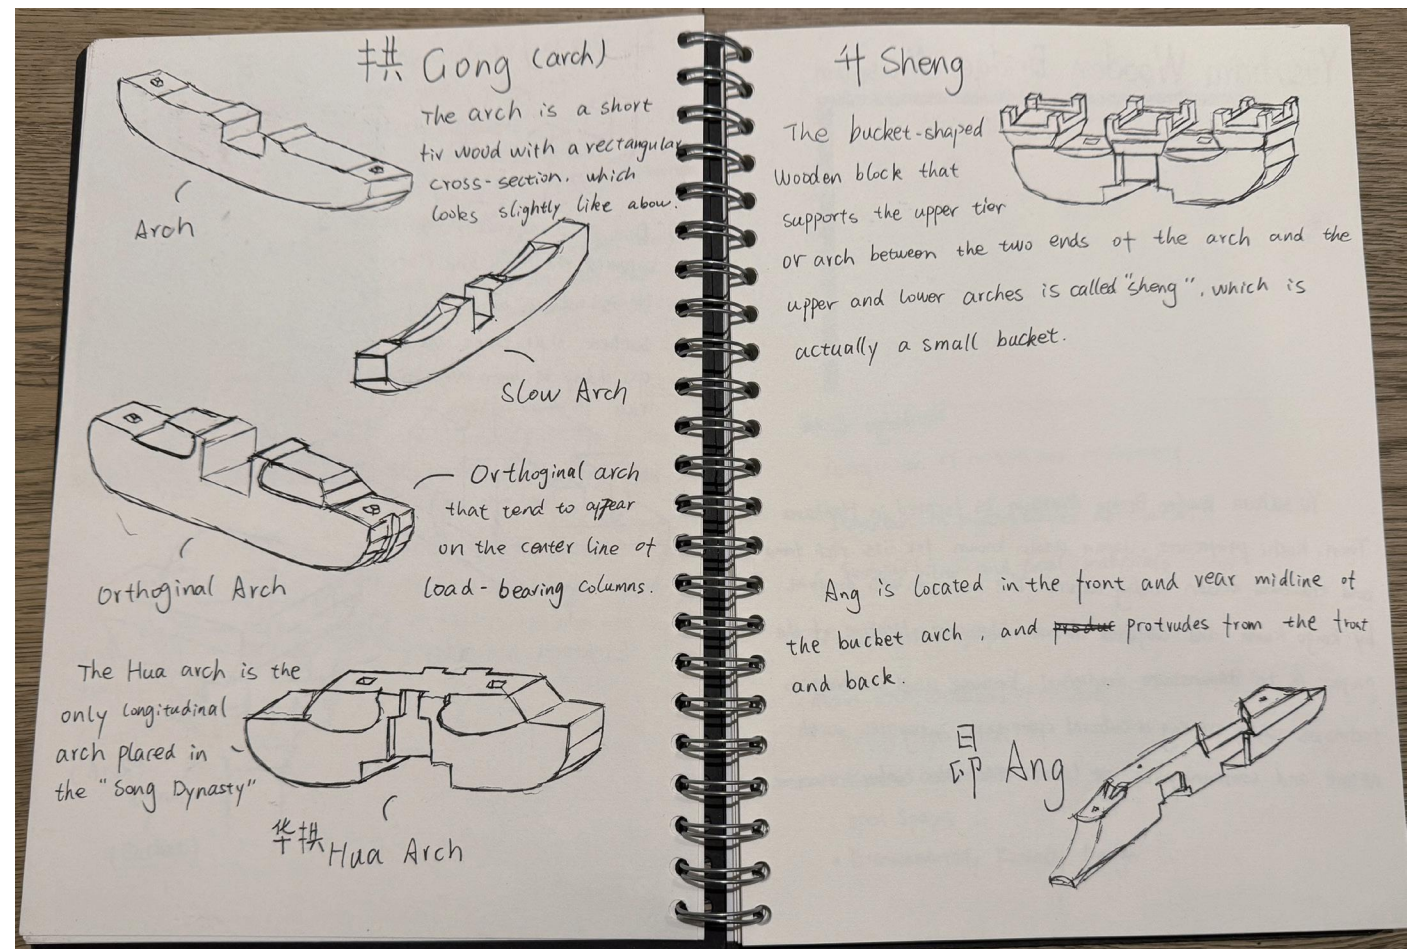 拱 Gong (arch)
The arch is a short
tiv wood with a rectangular
cross-section. which
looks slightly like abow.
Arch
Slow Arch
Orthoginal arch
that tend to appear
on the center line of
load-bearing columns.
Orthoginal Arch
The Hua arch is the
only longitudinal
arch placed in
the "Song Dynasty"
华拱 Hua Arch
升 Sheng
The bucket-shaped
wooden block that
supports the upper tier
or arch between the two ends of the arch and the
upper and lower arches is called "sheng", which is
actually a small bucket.
Ang is located in the front and rear midline of
the bucket arch, and produt protrudes from the front
and back.
昂 Ang